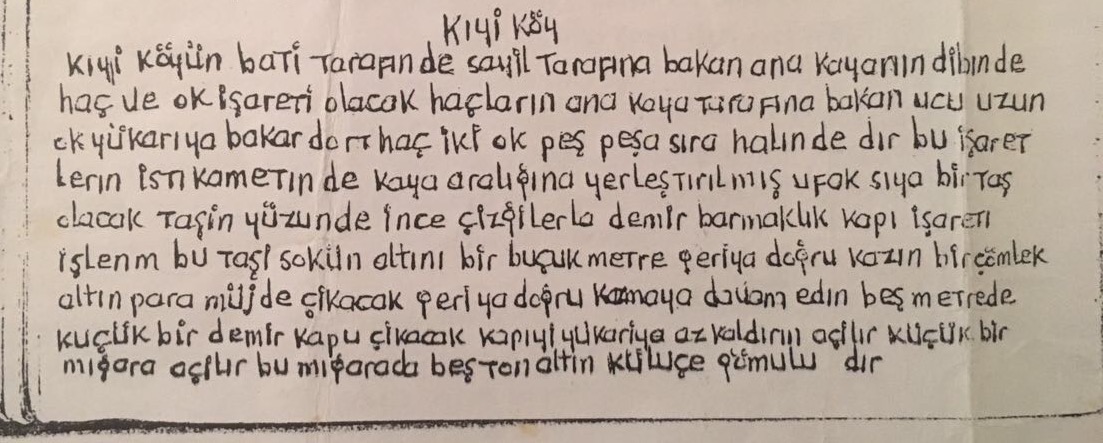 Kıyi Köy
Kıyi Köyün bati Tarafında sayil Tarafına bakan ana kayanın dibinde
haç ve ok işareti olacak haçların ana kaya tarafına bakan ucu uzun
ok yükarıya bakar dort haç iki ok peş peşa sıra halında dır bu işaret
lerın istikametınde kaya aralığına yerleştırılmış ufak sıya bir Taş
olacak Taşin yüzunde ince çizğilerla demir barmaklık kapı işareti
işlenm bu Taşi sokün altını bir buçuk metre geriya doğru kazın bir çömlek
altın para müjde çikacak geri ya doğru kazmaya davam edın beş metrede
kuçük bir demir kapu çikacak kapıyi yükariya az kaldırın açilır küçük bir
miğara açılır bu miğarada beş Ton altin külüçe gümulu dır